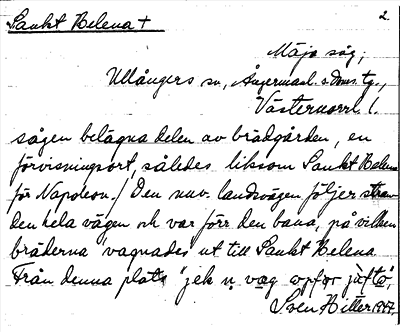 Sankt Helena +
2.
Mäja såg,
Ullångers sn, Ångermanl. s. doms. tg.,
Västernorrl. l.
sågen belägna delen av brädgården, en
förvisningsort, således liksom Sankt Helena
för Napoleon./ Den nuv. landsvägen följer stran
den hela vägen och var förr den bana, på vilken
bräderna vagnades ut till Sankt Helena
Från denna plats "jek
Sven Hitter 1947.